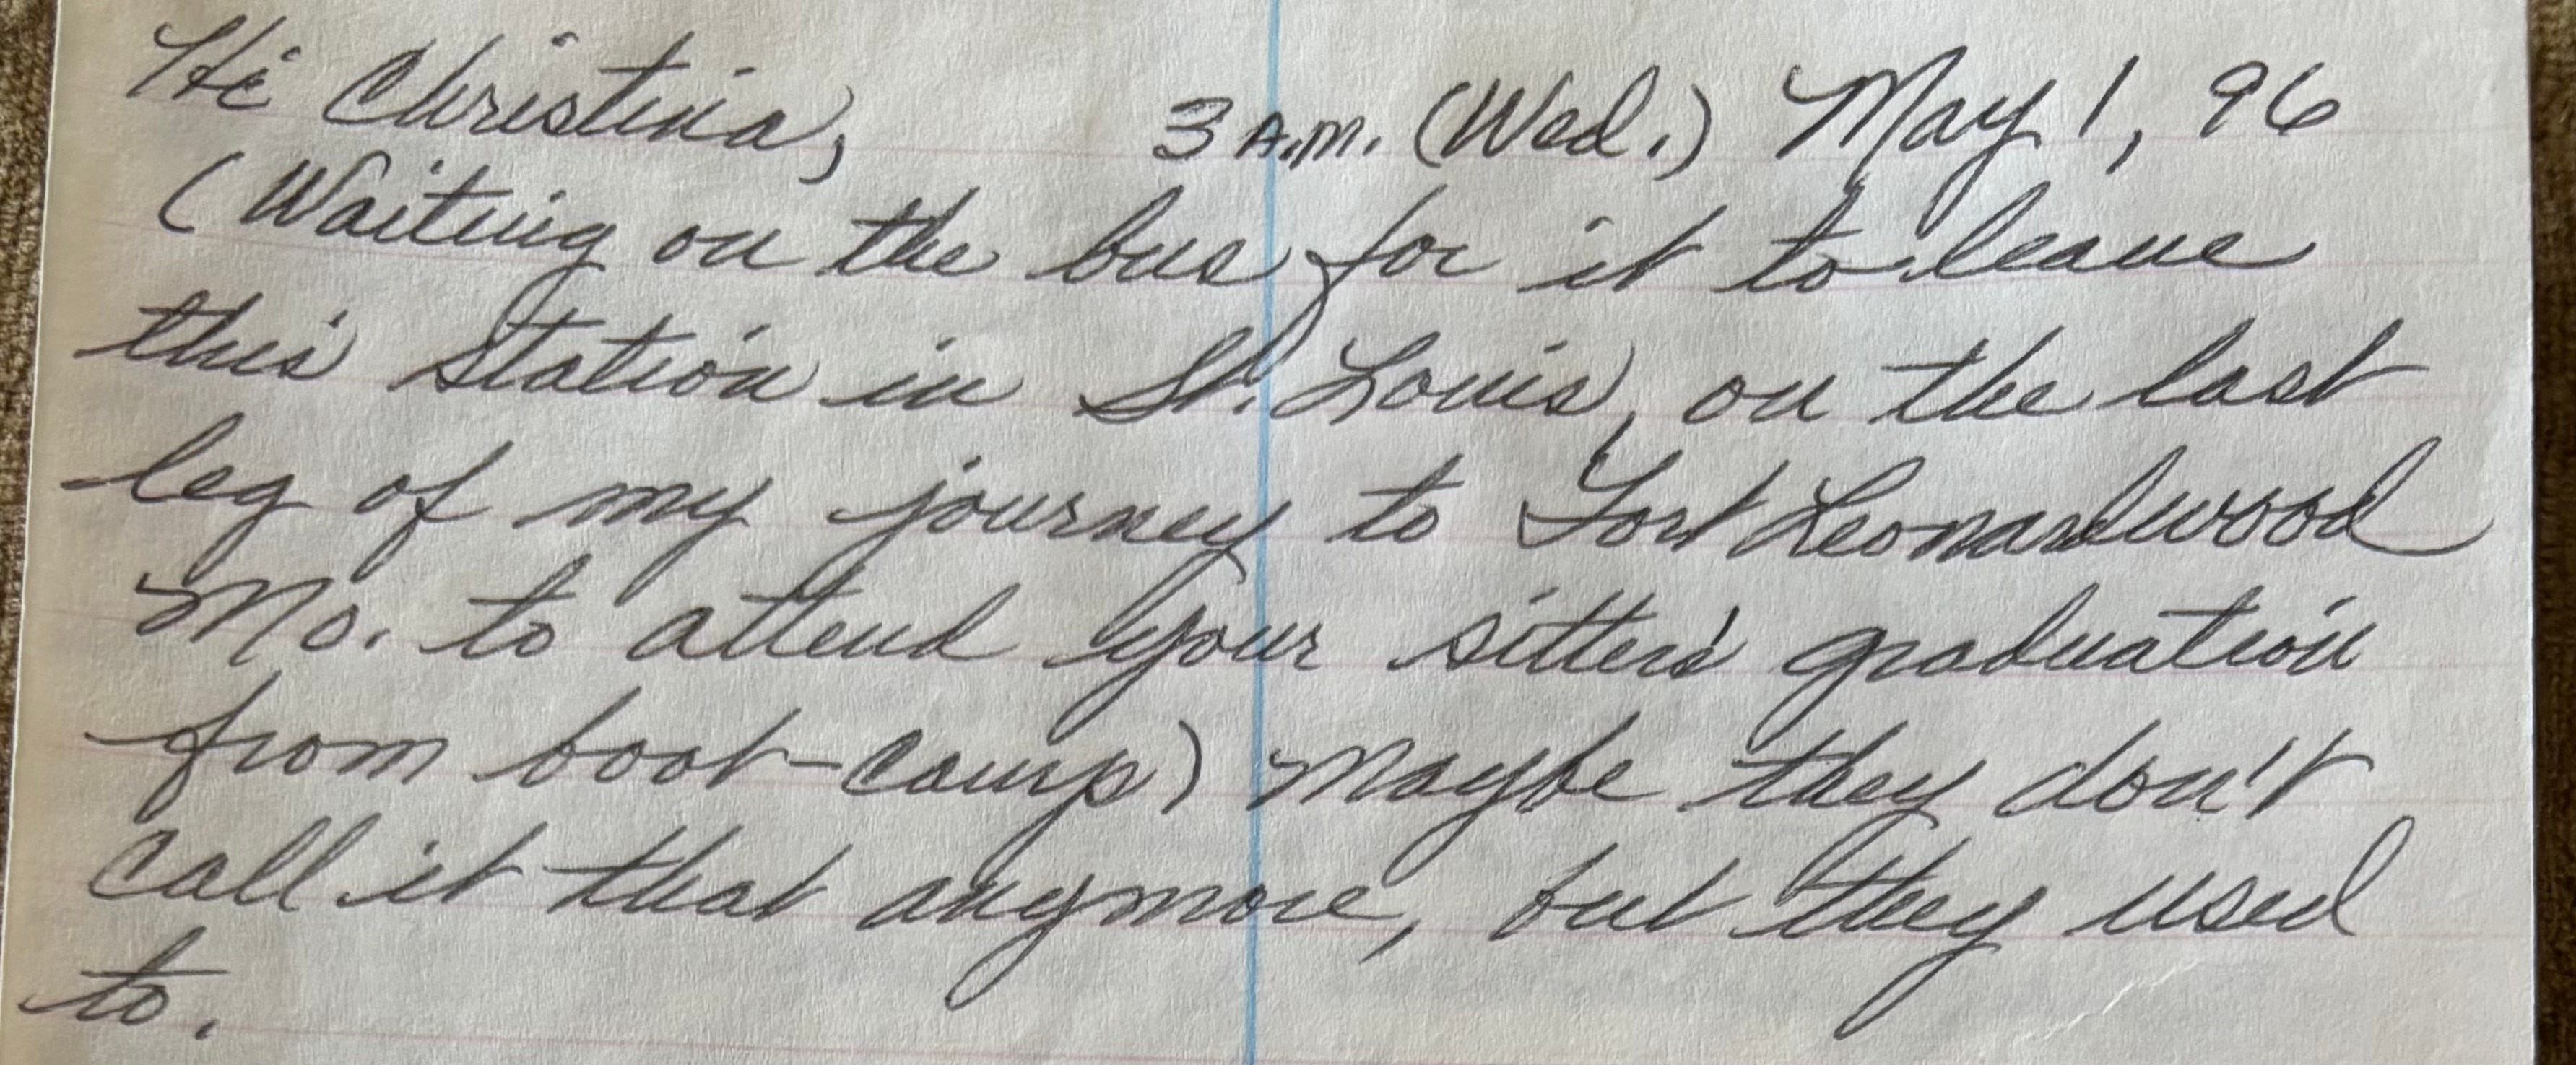 Hi Christina, 3 A.M. (Wed.) May 1, 96
(Waiting on the bus for it to leave
this station in St. Louis, on the last
leg of my journey to Fort Leonardwood
Mo. to attend your sitter's graduation
from boot-camp) Maybe they don't
call it that anymore, but they used
to.